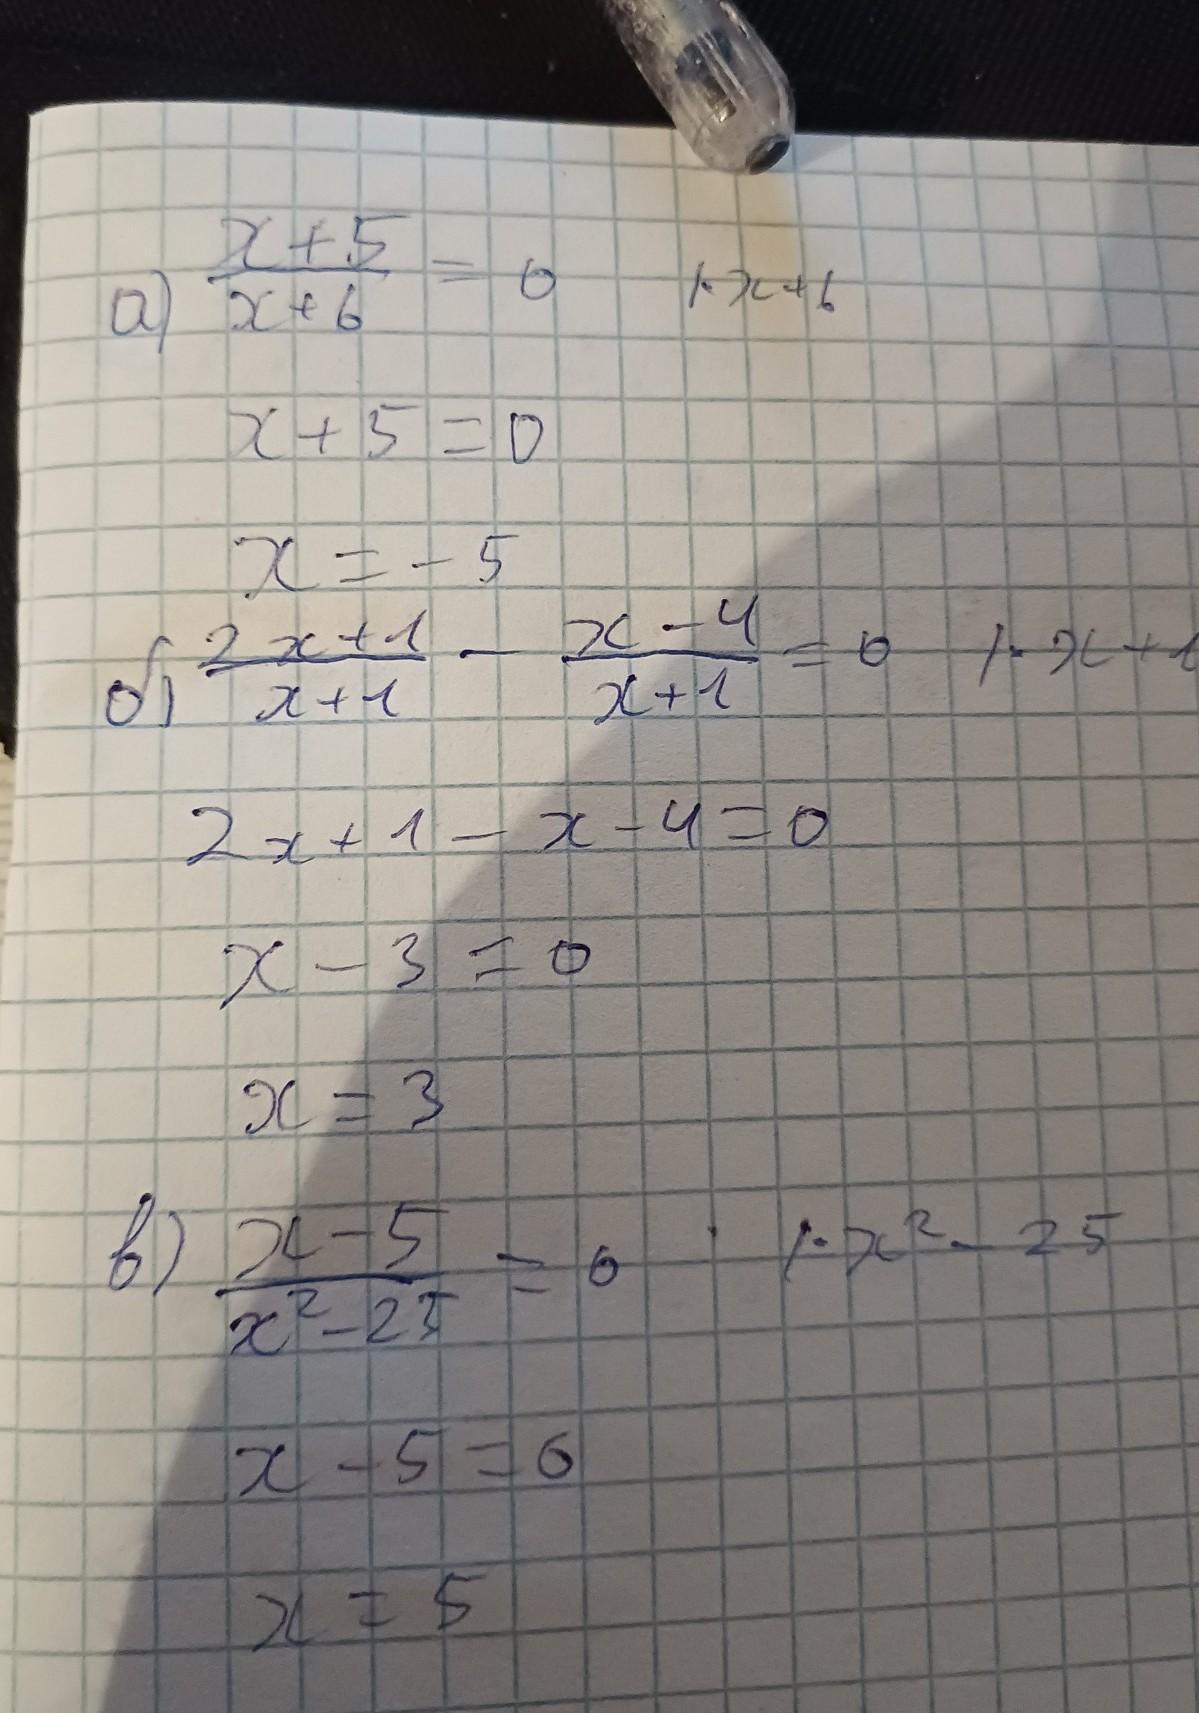 а) (x+5)/(x+6) = 0 /· x+6
x+5=0
x=-5
б) (2x+1)/(x+1) - (x-4)/(x+1) = 0 /· x+1
2x+1-x-4=0
x-3=0
x=3
в) (x-5)/(x²-25) = 0 /· x²-25
x-5=0
x=5